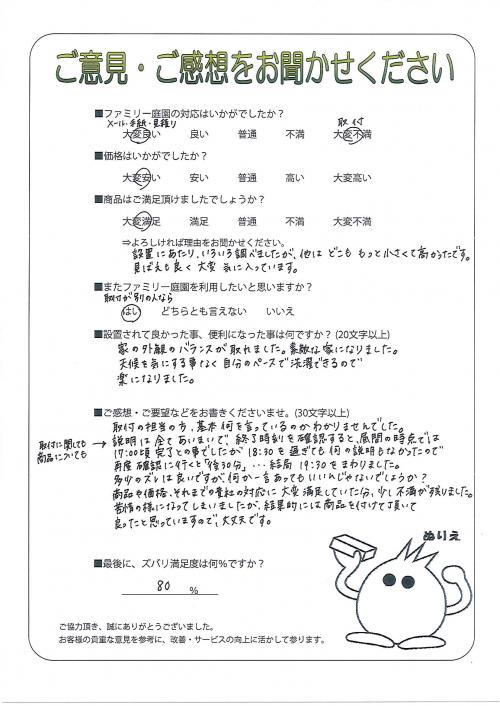 ご意見・ご感想をお聞かせください
■ファミリー庭園の対応はいかがでしたか？
メール・手紙・見積り 取付
大変良い 良い 普通 不満 大変不満
■価格はいかがでしたか？
大変安い 安い 普通 高い 大変高い
■商品はご満足頂けましたでしょうか？
大変満足 満足 普通 不満 大変不満
⇒よろしければ理由をお聞かせください。
設置にあたり、いろいろ調べましたが、他は どこも もっと小さくて高かったです。
見ばえも良く 大変 気に入っています。
■またファミリー庭園を利用したいと思いますか？
取付が別の人なら
はい どちらとも言えない いいえ
■設置されて良かった事、便利になった事は何ですか？(20文字以上)
家の外観のバランスが取れました。素敵な家になりました。
天候を気にする事なく自分のペースで洗濯できるので
楽になりました。
■ご感想・ご要望などをお書きくださいませ。(30文字以上)
取付の担当の方、基本何を言っているのかわかりませんでした。
取付に関しても
商品についても
→説明は全てあいまいで、終了時刻を確認すると、昼間の時点では
17:00頃完了との事でしたが 18:30を過ぎても何の説明もなかったので
再度確認に行くと「後30分」…結局 19:30をまわりました。
多少のズレは良いですが、何か一言あってもいいんじゃないでしょうか？
商品や価格、それまでの貴社の対応に大変満足していた分、少し不満が残りました。
苦情の様になってしまいましたが、結果的には商品を付けて頂いて
良ったと思っていますので、大丈夫です。
ぬりえ
■最後に、ズバリ満足度は何％ですか？
80 ％
ご協力頂き、誠にありがとうございました。
お客様の貴重な意見を参考に、改善・サービスの向上に活かして参ります。